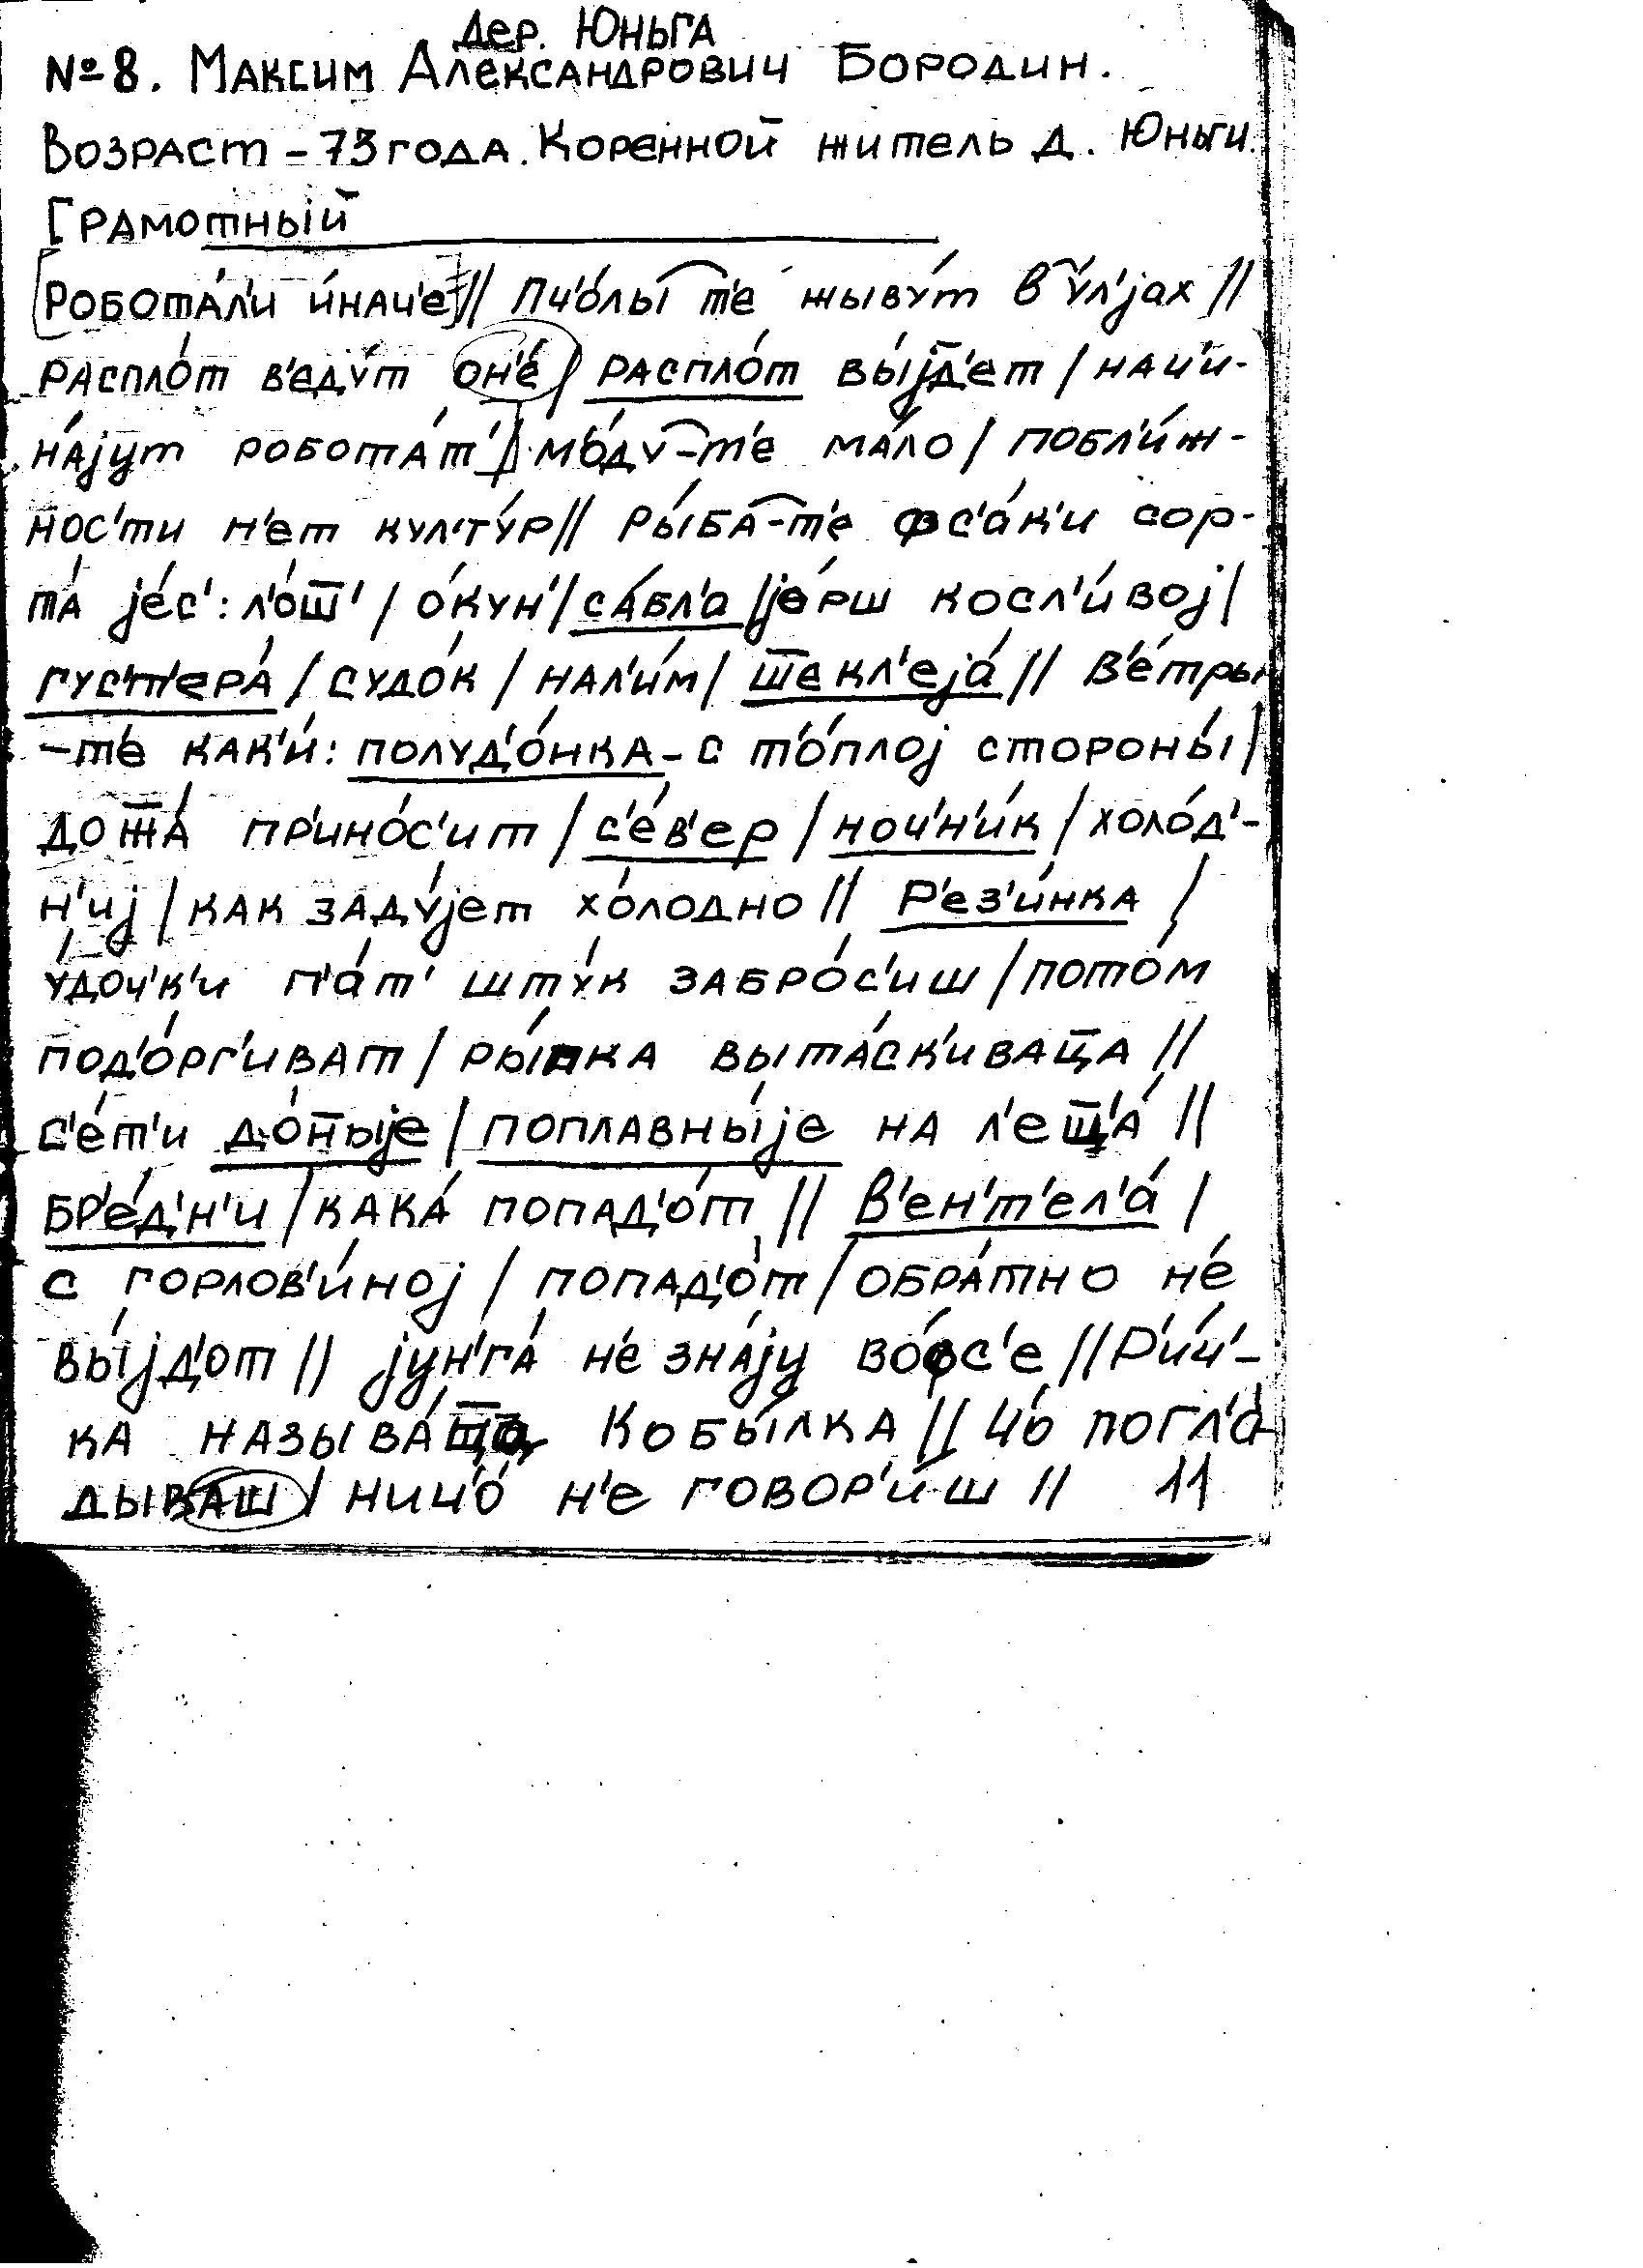 дер. Юньга
№8. Максим Александрович Бородин.
Возраст – 73 года. Коренной житель д. Юньги.
Грамотный
[робота́л'и и́нач'е] // пч'о́лы т'е жыву́т в у́л'јах //
распло́т в'еду́т он'е́ / распло́т вы́јд̄'ет / нач'и-
на́јут робота́т' // м'о́ду-т'е ма́ло / побл'и́ж-
нос'ти н'ет кул'ту́р // ры́ба-т'е фс'а́к'и сор-
та́ је́с': л'о́ш̄' / о́кун' / са́бл'а / је́рш косл'и́вој /
густ'ера́ / судо́к / нал'и́м / ш̄екл'еја́ // в'е́тры
-т'е как'и́: полуд'о́нка – с т'о́плој стороны́ /
дож̄а́ пр'ино́с'ит / с'е́в'ер / ноч'н'и́к / холо́д'-
н'иј / как заду́јет хо́лодно // р'ез'и́нка /
у́доч'к'и п'ат' шту́к забро́с'иш / пото́м
под'о́рг'иват / ры́пка выта́ск'ивац̄а //
с'е́т'и до́н̄ыје / поплавны́је на л'ещ̄'а́ //
бр'е́д'н'и / кака́ попад'о́т // в'ен'т'ел'а́ /
с горлов'и́ној / попад'о́т / обра́тно н'е
вы́јд'от // јун'га́ н'е зна́ју во́фс'е // р'и́ч'-
ка называ́ц̄а Кобы́лка // ч'о́ погл'а́-
дываш / нич'о́ н'е говор'и́ш // 11